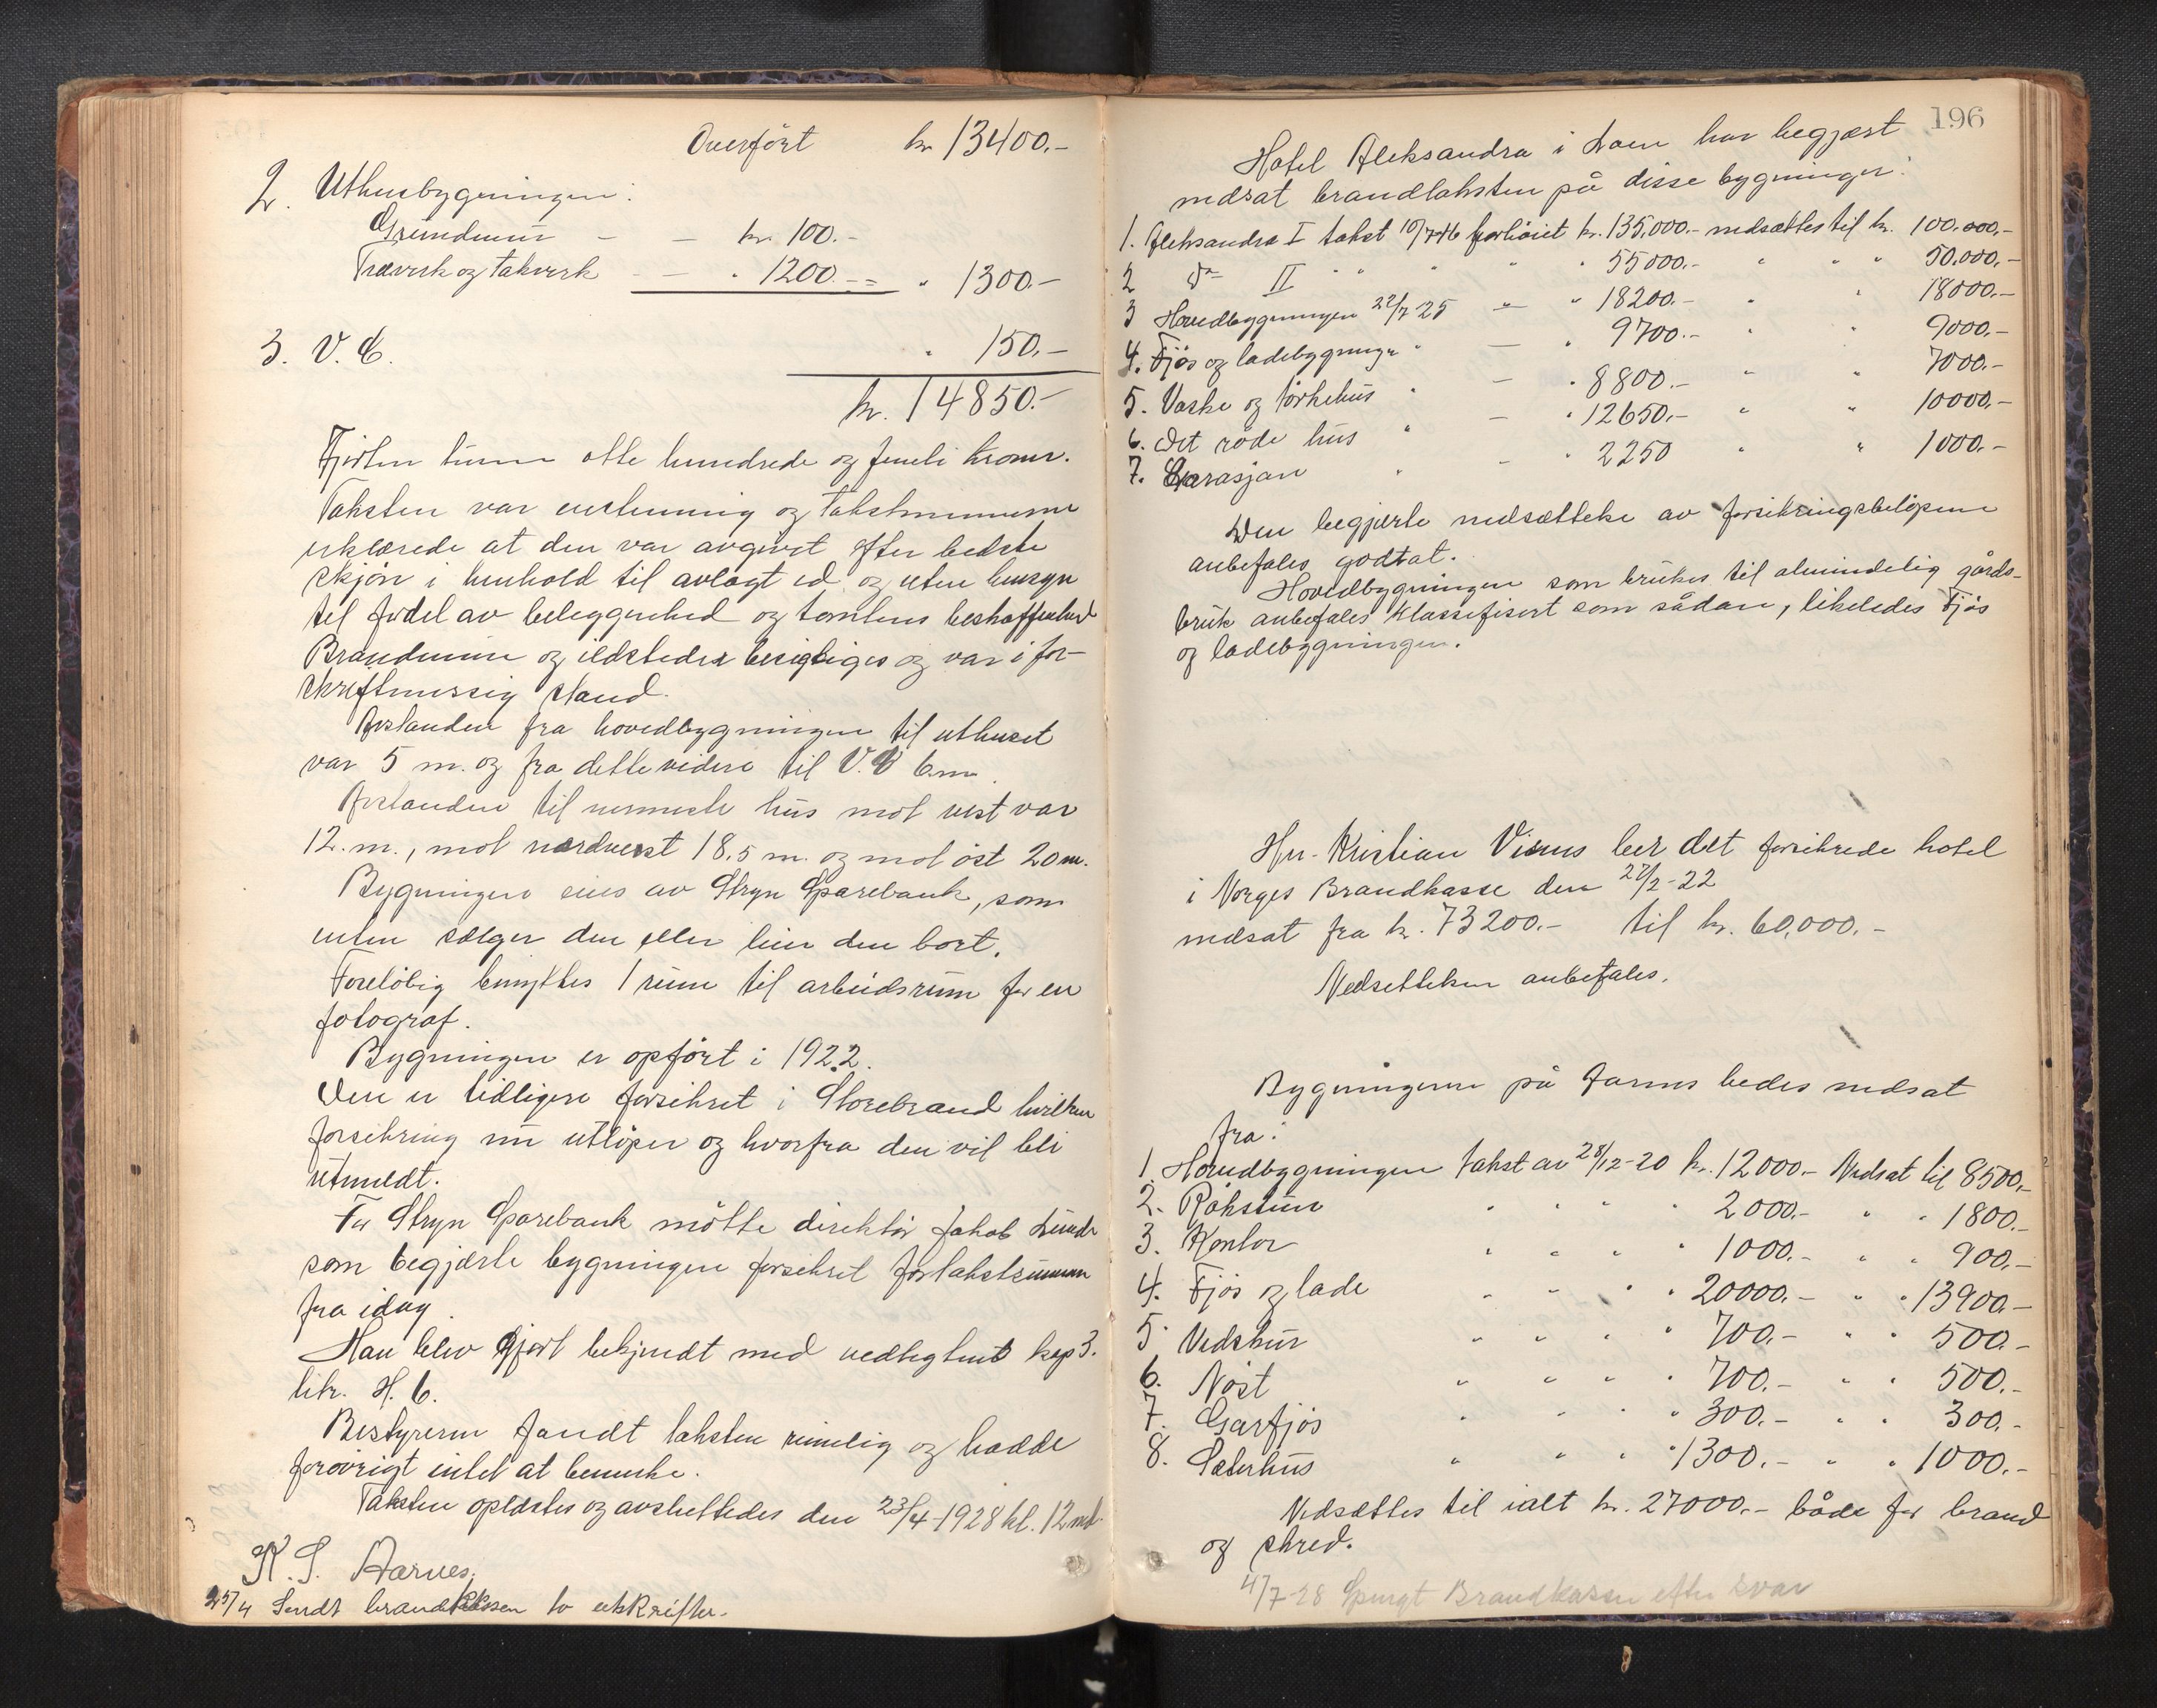 Overført kr 13400.-
2. Uthusbygningen:
Grundmur - - kr. 100.-
Træverk og takverk - - " 1200.-- = " 1300.-
3. V. C. " 150.-
kr. 14850.-
Fjorten tusen otte hundrede og femti kroner.
Taksten var enstemmig og takstmennene
erklærede at den var avgivet efter bedste
skjøn i henhold til avlagt ed og uten hensyn
til fordel av beliggenhed og tomtens beskaffenhed
Brandmur og ildsteder besigtiges og var i for-
skriftmessig stand.
Avstanden fra hovedbygningen til uthuset
var 5 m. og fra dette videre til V.C 6 m.
Avstanden til nermeste hus mot vest var
12. m., mot nordvest 18.5 m. og mot øst 20 m.
Bygningen eies av Stryn Sparebank, som
enten sælger den eller leier den bort.
Foreløbig benyttes 1 rum til arbeidsrum for en
fotograf.
Bygningen er opført i 1922.
Den er tidligere forsikret i Storebrand hvilken
forsikring nu utløper og hvorfra den vil bli
utmeldt.
For Stryn Sparebank møtte direktør Jakob Lunde
som begjærte bygningen forsikret for takstsummen
fra idag.
Han blev gjort bekjendt med vedtegtens kap 3.
litr. H. 6.
Bestyreren fandt taksten rimelig og hadde
forøvrigt intet at bemerke.
Taksten oplæstes og avsluttedes den 23/4-1928 kl. 12 md.
K. S. Aarnes.
25/4 Sendt brandkassen to utskrifter.
196
Hotel Aleksandra i Loen har begjært
nedsat brandtaksten på disse bygninger:
1. Aleksandra I takst forhøiet kr. 135,000.- nedsættes til kr. 100.000,-
2 do II " " " " " 55000.- " " " 50.000,-
3 Hovedbygningen 22/7 25 - " 18200.- " " 18000.-
4. Fjøs og ladebygningen " - " 9700.- " " 9000,-
5. Vaske og tørkehus " - " 8800.- " " 7000.-
6. Det røde hus " - " 12650,- " " 10000,-
7. Garasjan " - " 2250 " " 1000.-
Den begjærte nedsættelse av forsikringsbeløpene
anbefales godtat.
Hovedbygningen som brukes til almindelig gårds-
bruk anbefales klassefisert som sådan, likeledes Fjøs
og ladebygningen.
Hr. Kristian Visnes ber det forsikrede hotel
i Norges Brandkasse den 22/2-22
nedsat fra kr. 73200.- til kr. 60,000.-
Nedsettelsen anbefales.
Bygningerne på bedes nedsat
fra:
1. Hovedbygningen takst av 28/12-20 kr. 12000.- Nedsat til 8500,-
2. Røkstun " " " " 2000.- " " 1800.-
3. Kontor " " " " 1000.- " " 900,-
4. Fjøs og lade " " " " 20000.- " " 13900.-
5. Vedskur " " " " 700,- " " 500.-
6. Nøst " " " " 700.- " " 500.-
7. Garfjøs " " " " 300.- " " 300.-
8. Sæterhus " " " " 1300.- " " 1000.-
Nedsættes til ialt kr. 27000.- både for brand
og skred.
4/7-28 Spurgt Brandkassen efter svar